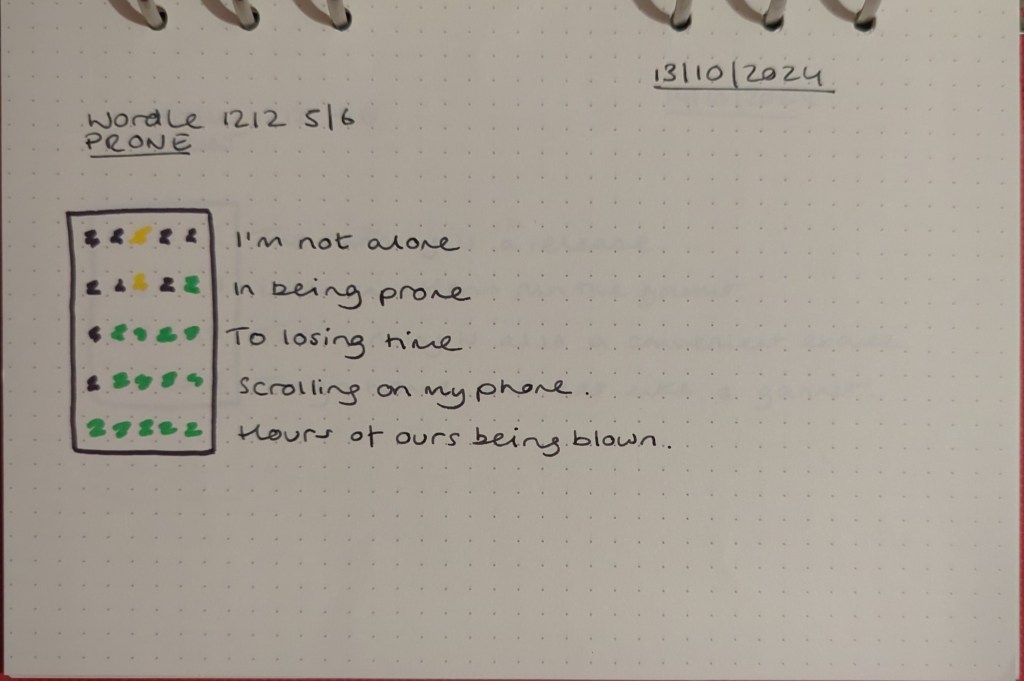 13/10/2024
Wordle 1212 5/6
PRONE
I'm not alone
In being prone
To losing time
Scrolling on my phone.
Hours of ours being blown.